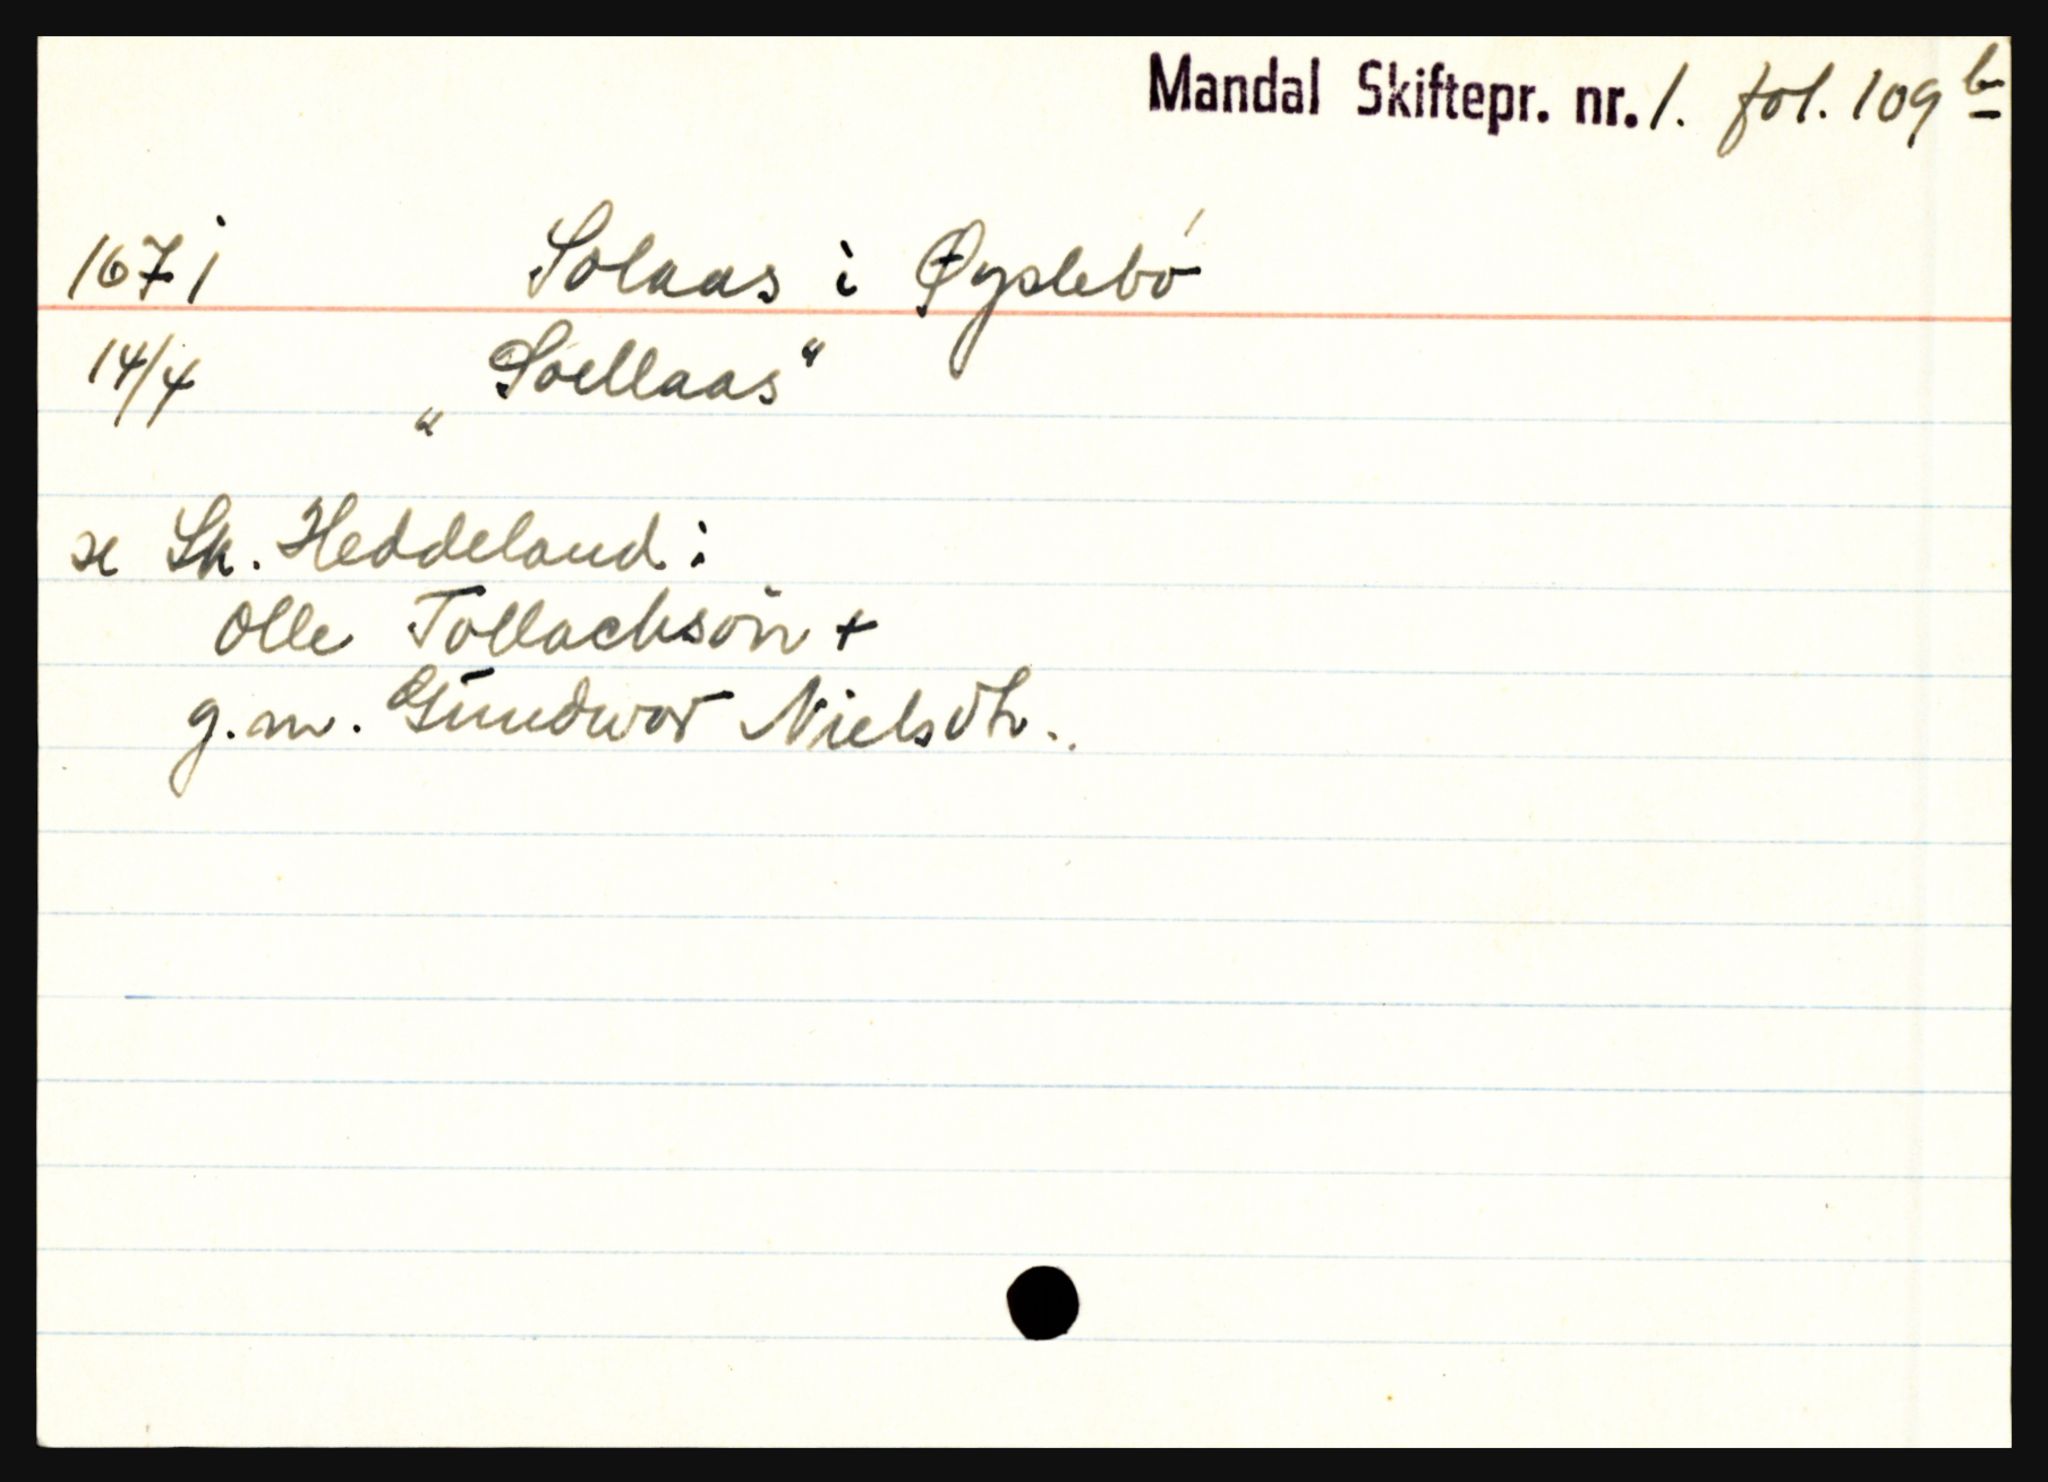 Mandal Skiftepr. nr. 1. fol. 109 b
1671 Solaas i Øyslebø
14/4 „Soellaas“
se Sk. Heddeland:
Olle Tollachsön +
g.m. Gundwor Nielsdtr.